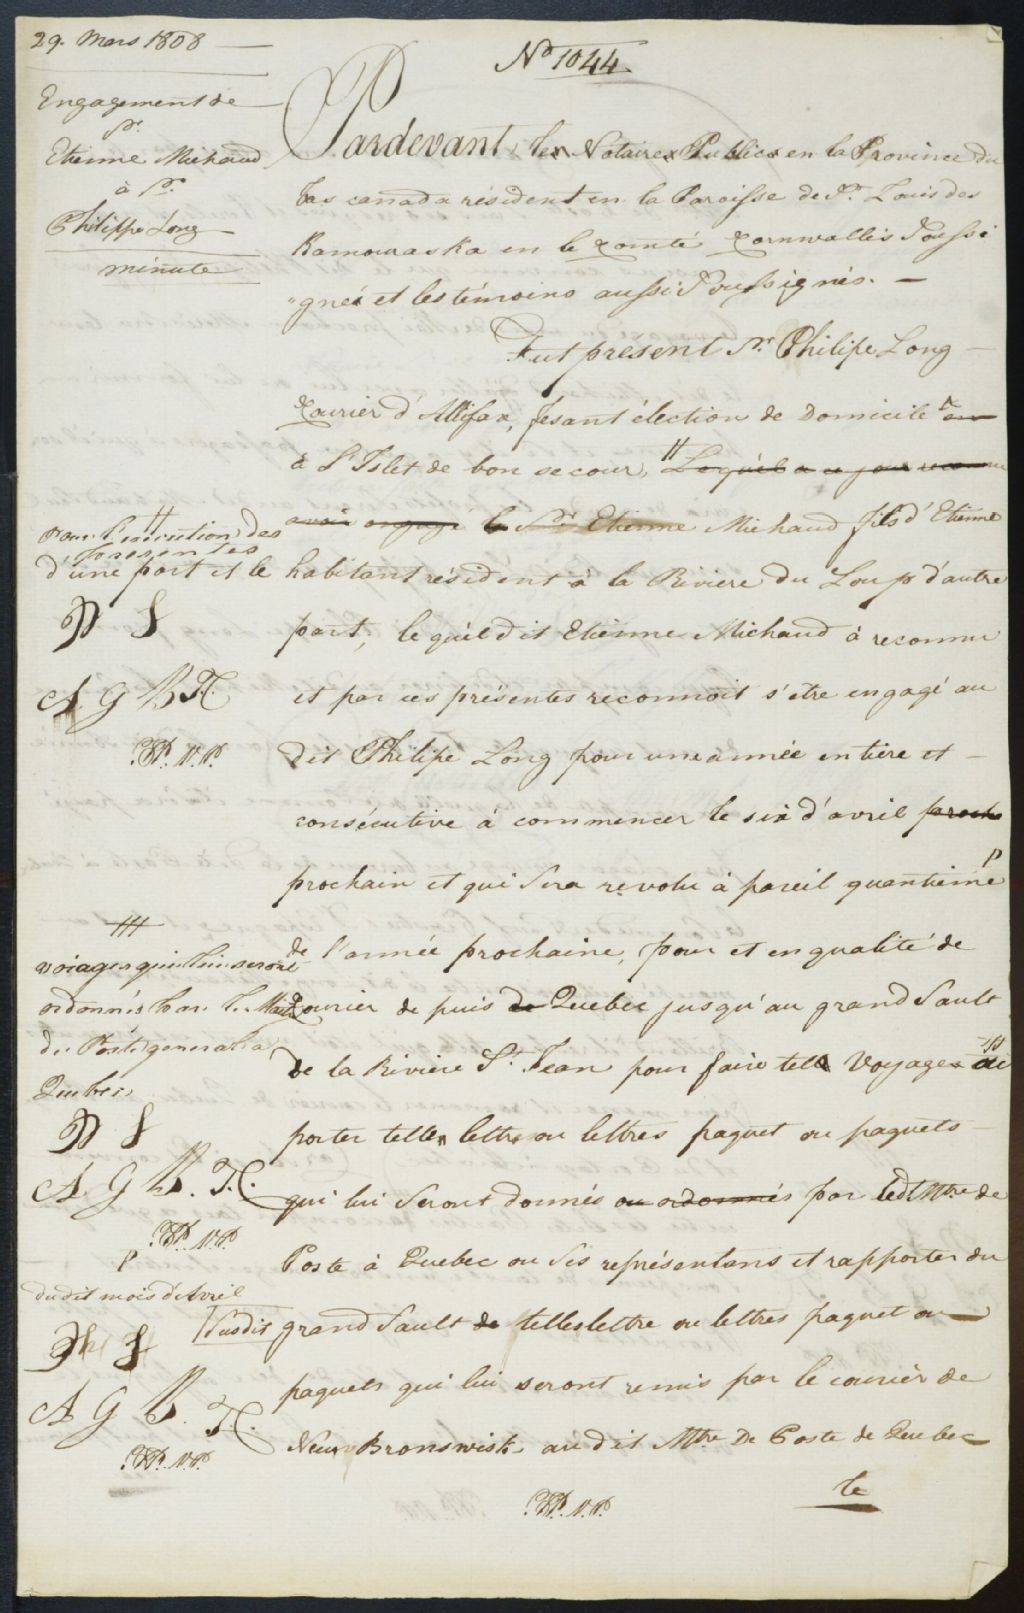 29. Mars 1808
Nº 1044
Engagement de
Sr.
Etienne Michaud
à Sr.
Philippe Long
minute
Pardevant les Notaires Publics en la Province du
bas canada résident en la Paroisse de St. Louis des
Kamouraska en le Comté Cornwallis Soussi
"gnés et les témoins aussi Soussignés. —
Fut present Sr. Philipe Long —
Courier d'Allifax, fesant élection de Domicile
à L'Islet de bon secour, # Lequel a ce jour reconnu
avoir engagé le Sr. Etienne Michaud fils d'Etienne
#
Pour l'execution des
presentes
d'une part et le habitant résident à la Riviere du Loup d'autre
part, le quel dit Etienne Michaud à reconnu
et par ces présentes reconnoit s'etre engagé au
dit Philipe Long pour une année entière et —
consécutive à commencer le six d'avril proch
prochain et qui Sera revolu à pareil quantieme P
de l'année prochaine, pour et en qualité de
Courier de puis de Quebec jusqu'au grand Sault
de la Riviere St. Jean pour faire tels Voyages
porter telles lettre ou lettres paquet ou paquets —
qui lui Seront donnés ou ordonnés par ledt Mtre de
Poste à Quebec ou Ses représentans et rapporter du
susdit grand Sault de telles lettre ou lettres paquet ou —
paquets qui lui seront remis par le courier de
New Bronswisk au dit Mtre De Poste de Quebec
le
P S
A G B H
///
voiages qui lui seront
ordonnés par le Mait
des Postes general a
Quebec
P S
A G B. H.
P
du dit mois d'Avril
Ph S
A G B. H.